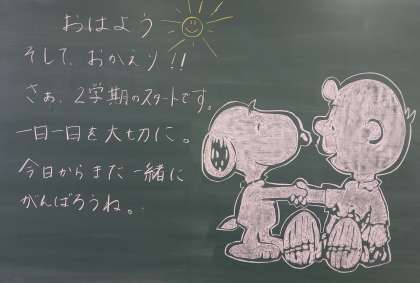 おはよう
そして、おかえり!!
さあ、2学期のスタートです。
一日一日を大切に。
今日からまた一緒に
がんばろうね。